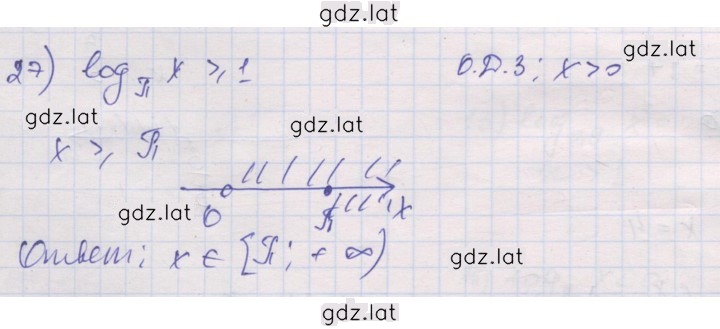 gdz.lat
27) log_π x ≥ 1 О.Д.З: x > 0
gdz.lat
gdz.lat
gdz.lat
x ≥ π
0 π x
gdz.lat
Ответ: x ∈ [π; +∞)
gdz.lat
gdz.lat